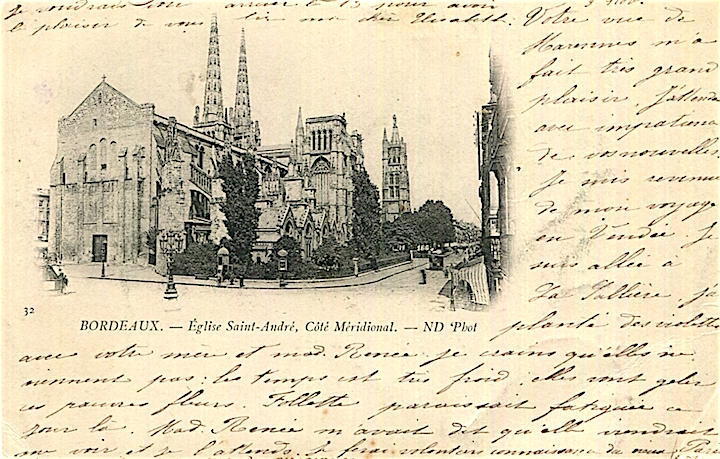 Je voudrais arriver le 15 pour avoir
le plaisir de vous lire ma chère Elisabeth.
Votre vue de
Marennes m'a
fait très grand
plaisir. J'attends
avec impatience
de vos nouvelles.
Je suis revenue
de mon voyage
en Vendée. Je
suis allée à
La
planté des violettes
avec votre mère et mad. Renée je crains qu'elles ne
viennent pas : le temps est très froid ; elles vont geler
ces pauvres fleurs. Follette paraissait fatiguée ce
jour là. Mad. Renée m'avait dit qu'elle viendrait
me voir et je l'attends. Je ferai volontiers connaissance de
32
BORDEAUX. — Église Saint-André, Côté Méridional. — ND Phot